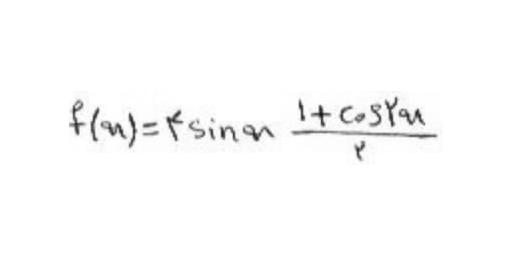 f(x) = ۴ sin x (۱ + cos ۲x) / ۲